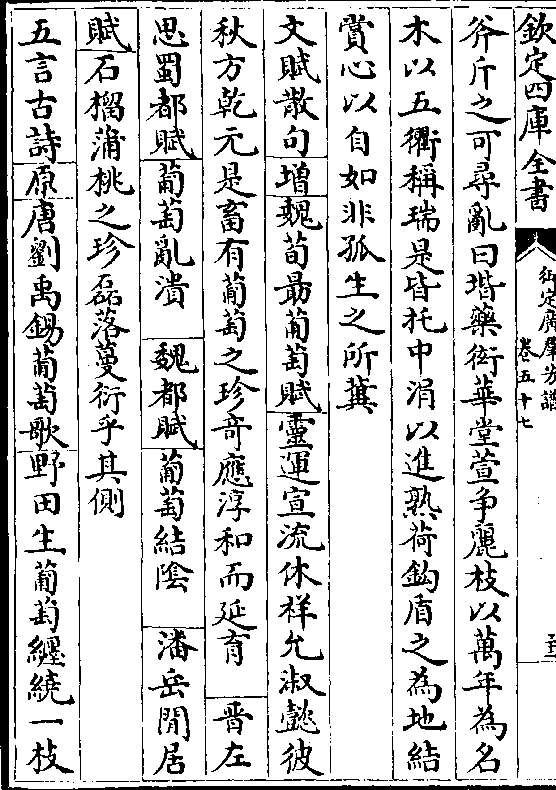 欽定四庫全書
御定廣羣芳譜
卷五十七
斧斤之可尋亂曰堦藥衒華堂萱争麗枝以萬年為名
木以五衢稱瑞是皆托中涓以進熟荷鈎盾之為地結
賞心以自如非孤生之所冀
文賦散句增魏荀朂葡萄賦靈運宣流休祥允淑懿彼
秋方乾元是畜有葡萄之珍竒應淳和而延育 晋左
思蜀都賦葡萄亂潰 魏都賦葡萄結陰 潘岳閒居
賦石榴蒲桃之珍磊落蔓衍乎其側
五言古詩原唐劉禹錫葡萄歌野田生葡萄纒繞一枝